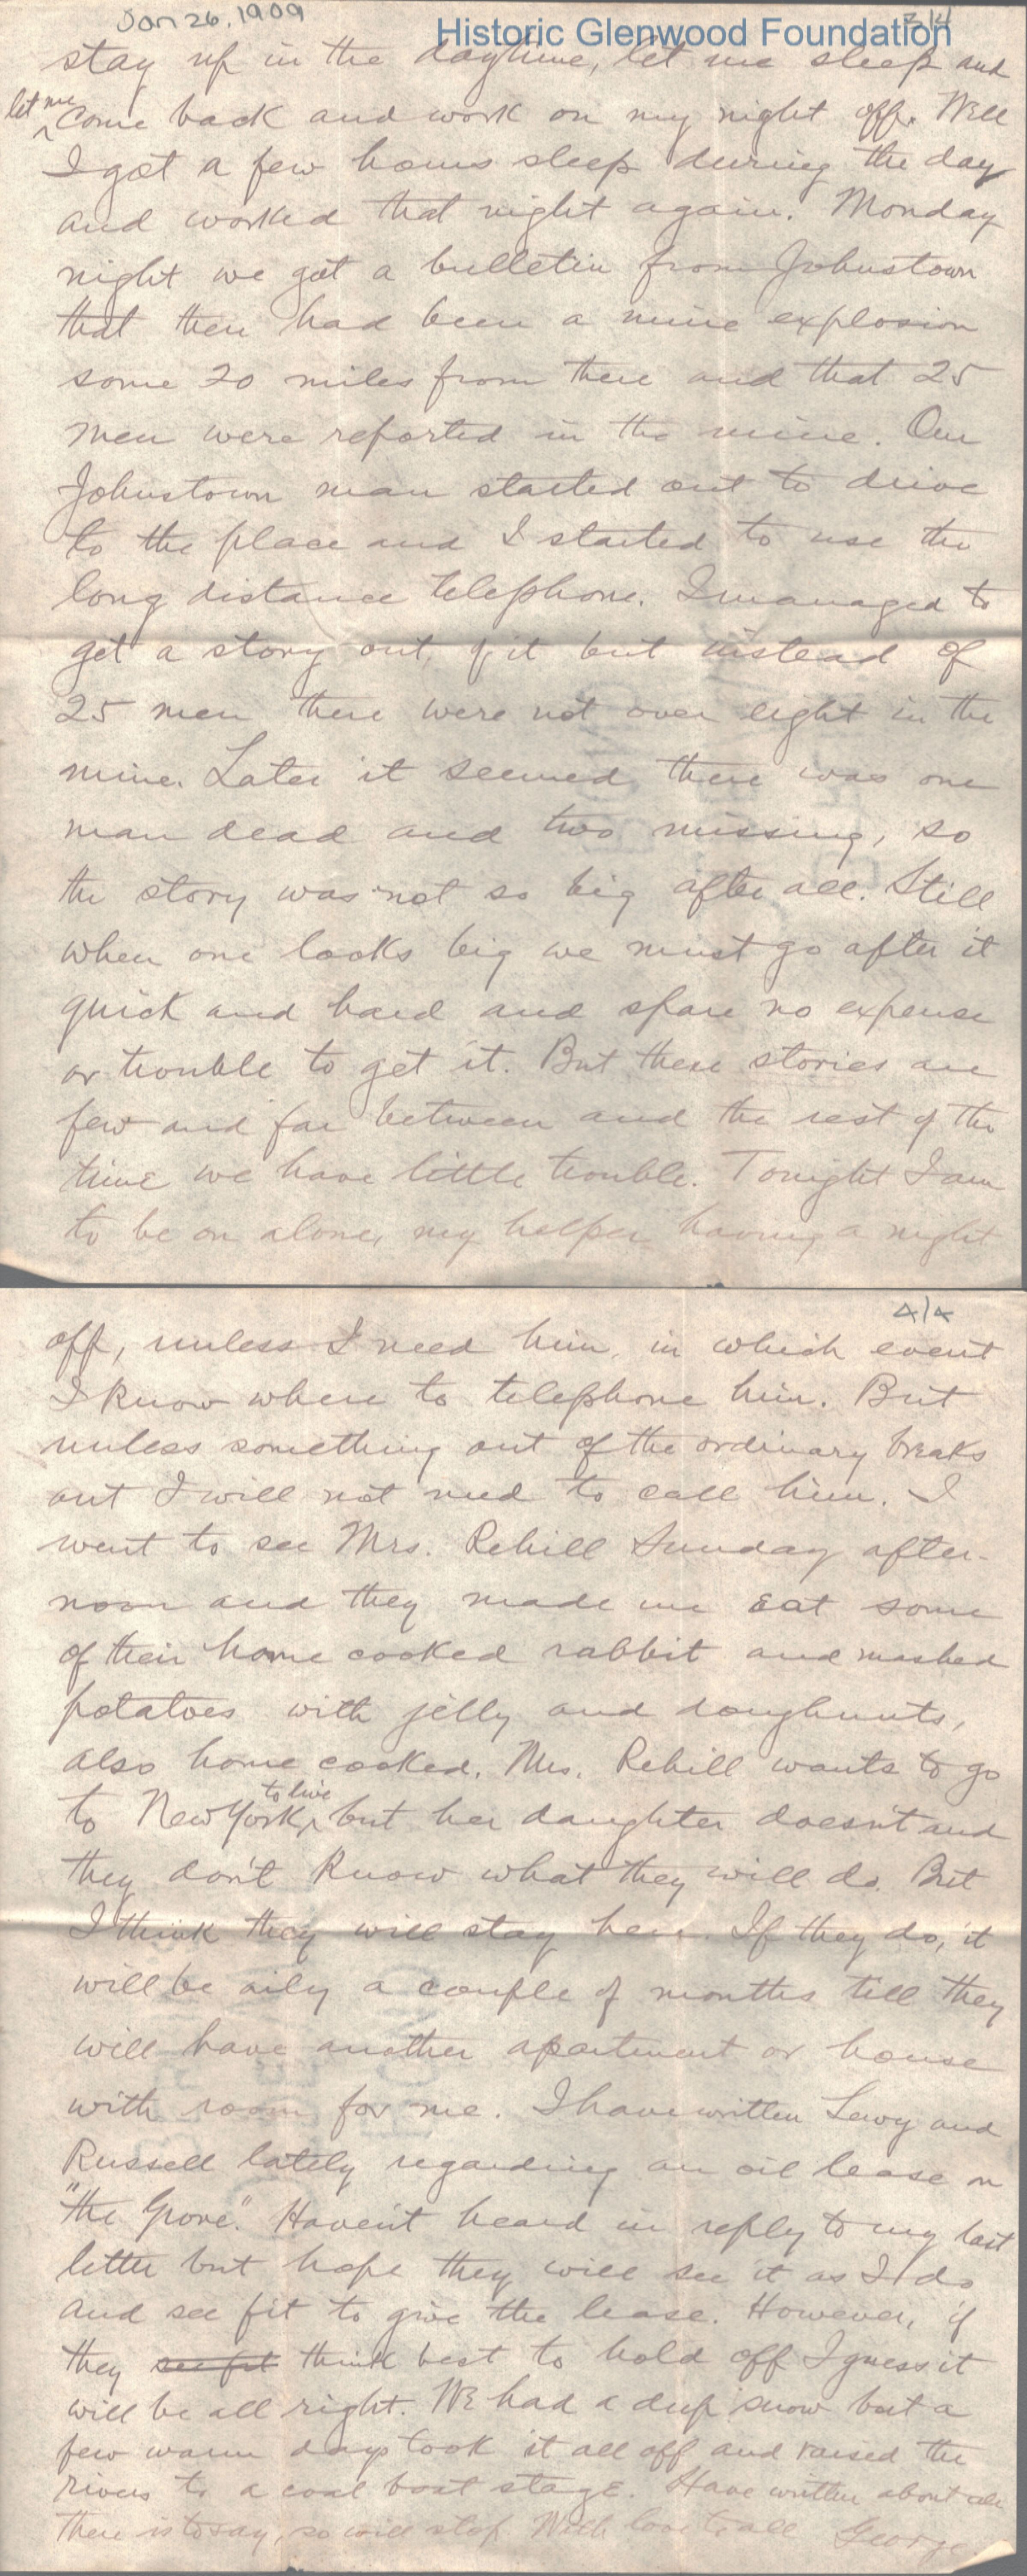 Jan 26, 1909
3/4
Historic Glenwood Foundation
stay up in the daytime, let me sleep and
let me come back and work on my night off. Well
I got a few hours sleep during the day
and worked that night again. Monday
night we got a bulletin from Johnstown
that there had been a mine explosion
some 20 miles from there and that 25
men were reported in the mine. Our
Johnstown man started out to drive
to the place and I started to use the
long distance telephone. I managed to
get a story out of it but instead of
25 men there were not over eight in the
mine. Later it seemed there was one
man dead and two missing, so
the story was not so big after all. Still
when one looks big we must go after it
quick and hard and spare no expense
or trouble to get it. But these stories are
few and far between and the rest of the
time we have little trouble. Tonight I am
to be on alone, my helper having a night
4/4
off, unless I need him, in which event
I know where to telephone him. But
unless something out of the ordinary breaks
out I will not need to call him. I
went to see Mrs. Rehill Sunday after-
noon and they made me eat some
of their home cooked rabbit and mashed
potatoes with jelly and doughnuts,
also home cooked. Mrs. Rehill wants to go
to New York to live, but her daughter doesn't and
they don't know what they will do. But
I think they will stay here. If they do, it
will be only a couple of months till they
will have another apartment or house
with room for me. I have written Levy and
Russell lately regarding an oil lease on
"the Grove". Haven't heard in reply to my last
letter but hope they will see it as I do
and see fit to give the lease. However, if
they see fit think best to hold off I guess it
will be all right. We had a deep snow but a
few warm days took it all off and raised the
rivers to a coal boat stage. Have written about all
there is to say, so will stop. With love to all George